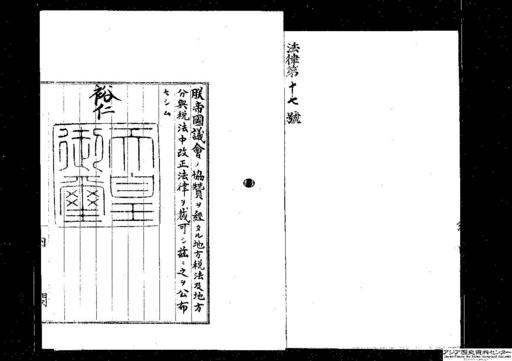 法律第十七號
朕帝國議會ノ協贊ヲ經タル地方稅法及地方
分與稅法中改正法律ヲ裁可シ茲ニ之ヲ公布
セシム
裕仁
天皇
御璽
内閣
アジア歴史資料センター